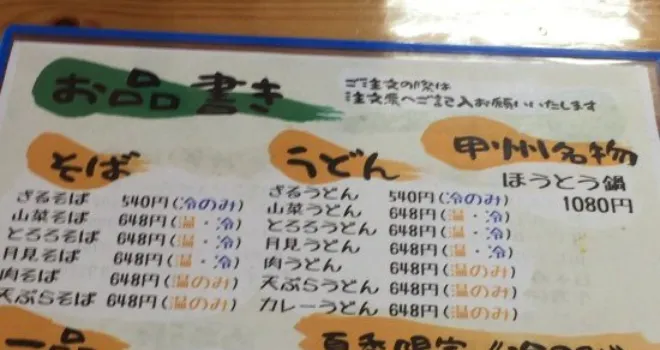 お品書き
ご注文の際は
注文票へご記入お願いいたします
そば
ざるそば 540円(冷のみ)
山菜そば 648円(温・冷)
とろろそば 648円(温・冷)
月見そば 648円(温・冷)
肉そば 648円(温のみ)
天ぷらそば 648円(温のみ)
うどん
ざるうどん 540円(冷のみ)
山菜うどん 648円(温・冷)
とろろうどん 648円(温・冷)
月見うどん 648円(温・冷)
肉うどん 648円(温のみ)
天ぷらうどん 648円(温のみ)
カレーうどん 648円(温のみ)
甲州名物
ほうとう鍋
1080円
一品
夏季限定